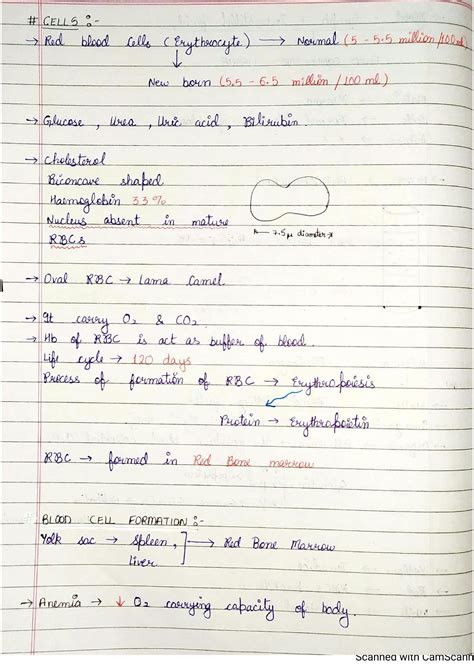 # CELLS :-
→ Red blood Cells (Erythrocyte) → Normal (5 - 5.5 million/100ml)
↓
New born (5.5 - 6.5 million / 100 ml)
→ Glucose, Urea, Uric acid, Bilirubin
→ Cholesterol
Biconcave shaped
Haemoglobin 33%
Nucleus absent in mature
RBCs
7.5 µ diameter
→ Oval RBC → Lama Camel.
→ It carry O2 & CO2.
→ Hb of RBC is act as buffer of blood.
Life cycle → 120 days
Process of formation of RBC → Erythropoiesis
Protein → Erythropoietin
RBC → formed in Red Bone marrow
BLOOD CELL FORMATION :-
Yolk sac → Spleen, → Red Bone Marrow
Liver
→ Anemia → ↓ O2 carrying capacity of body.
Scanned with CamScann